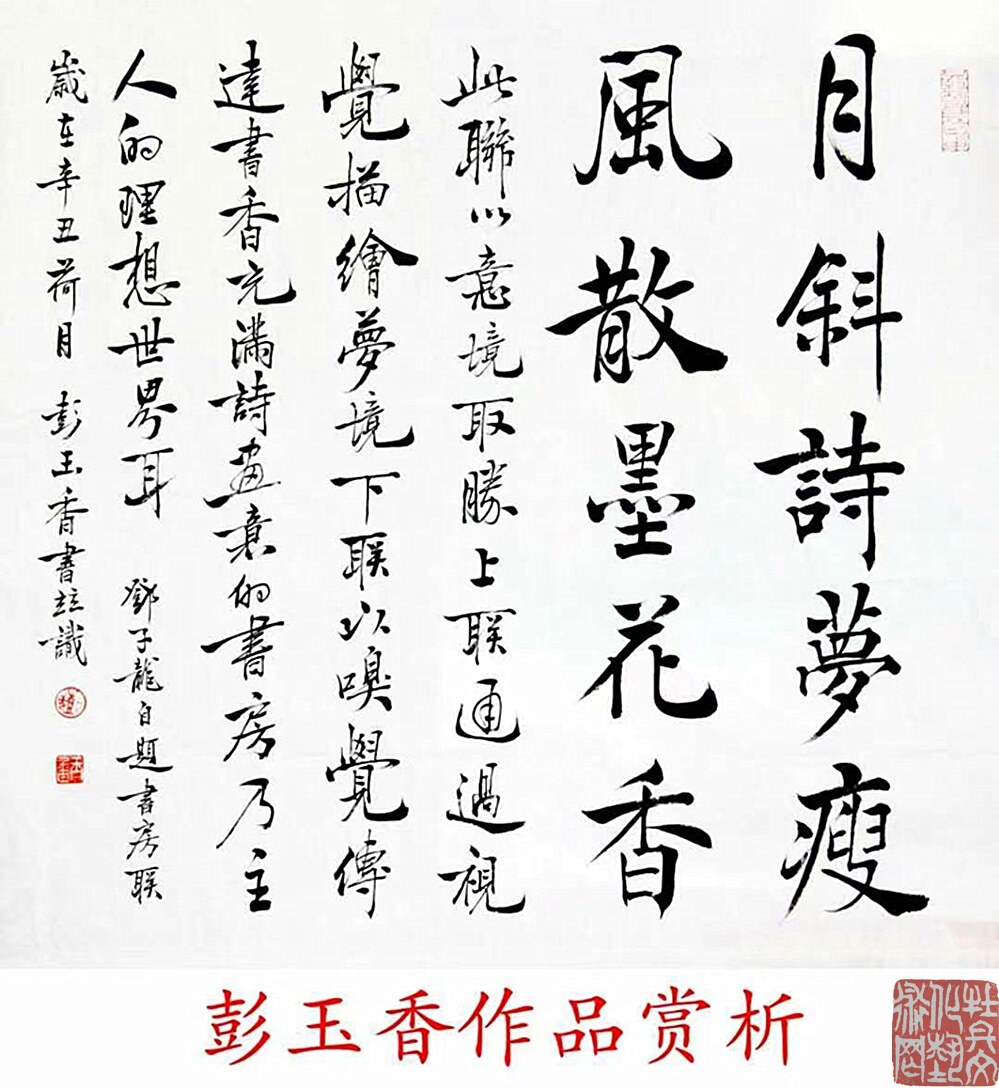 月斜詩夢瘦
風散墨花香
此聯以意境取勝上联通過視
覺描繪夢境下联以嗅覺傳
達書香充滿詩畫意的書房乃主
人的理想世界耳 鄧子龍自題書房联
歲在辛丑荷月 彭玉香書並識
彭玉香作品赏析